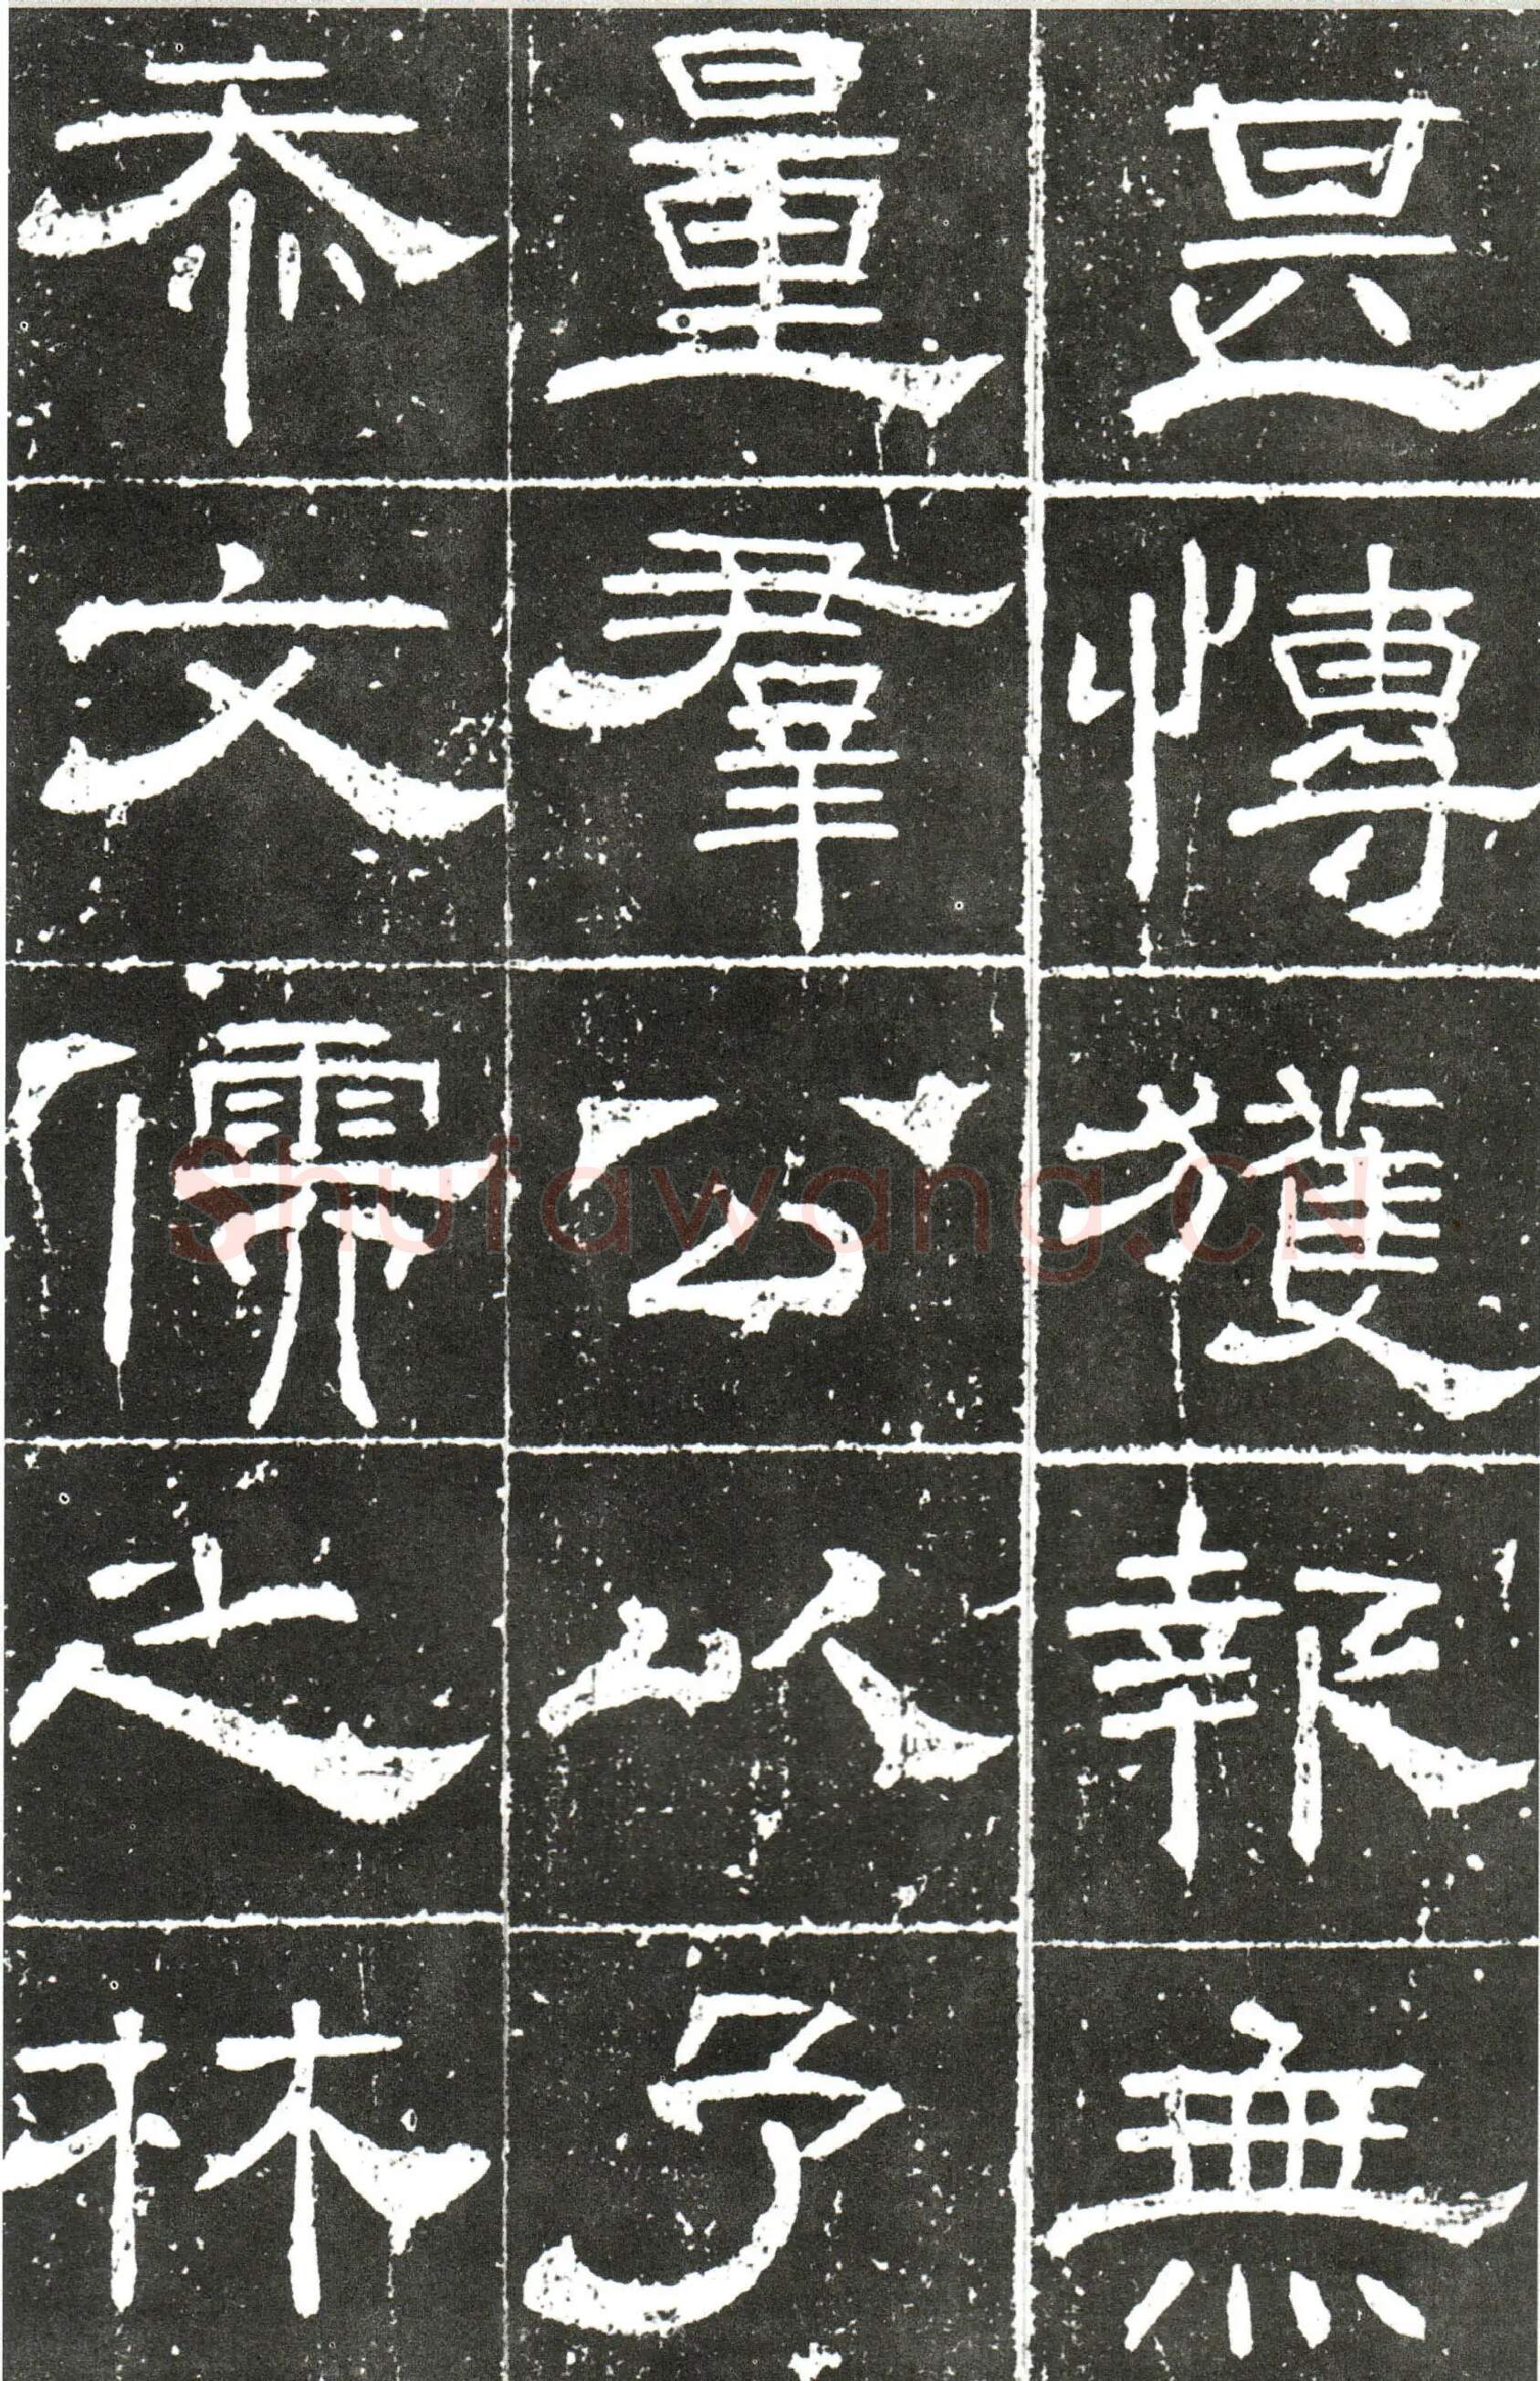 甚愽獲報無
量羣公以予
忝文儒之林
Shufawang.CN